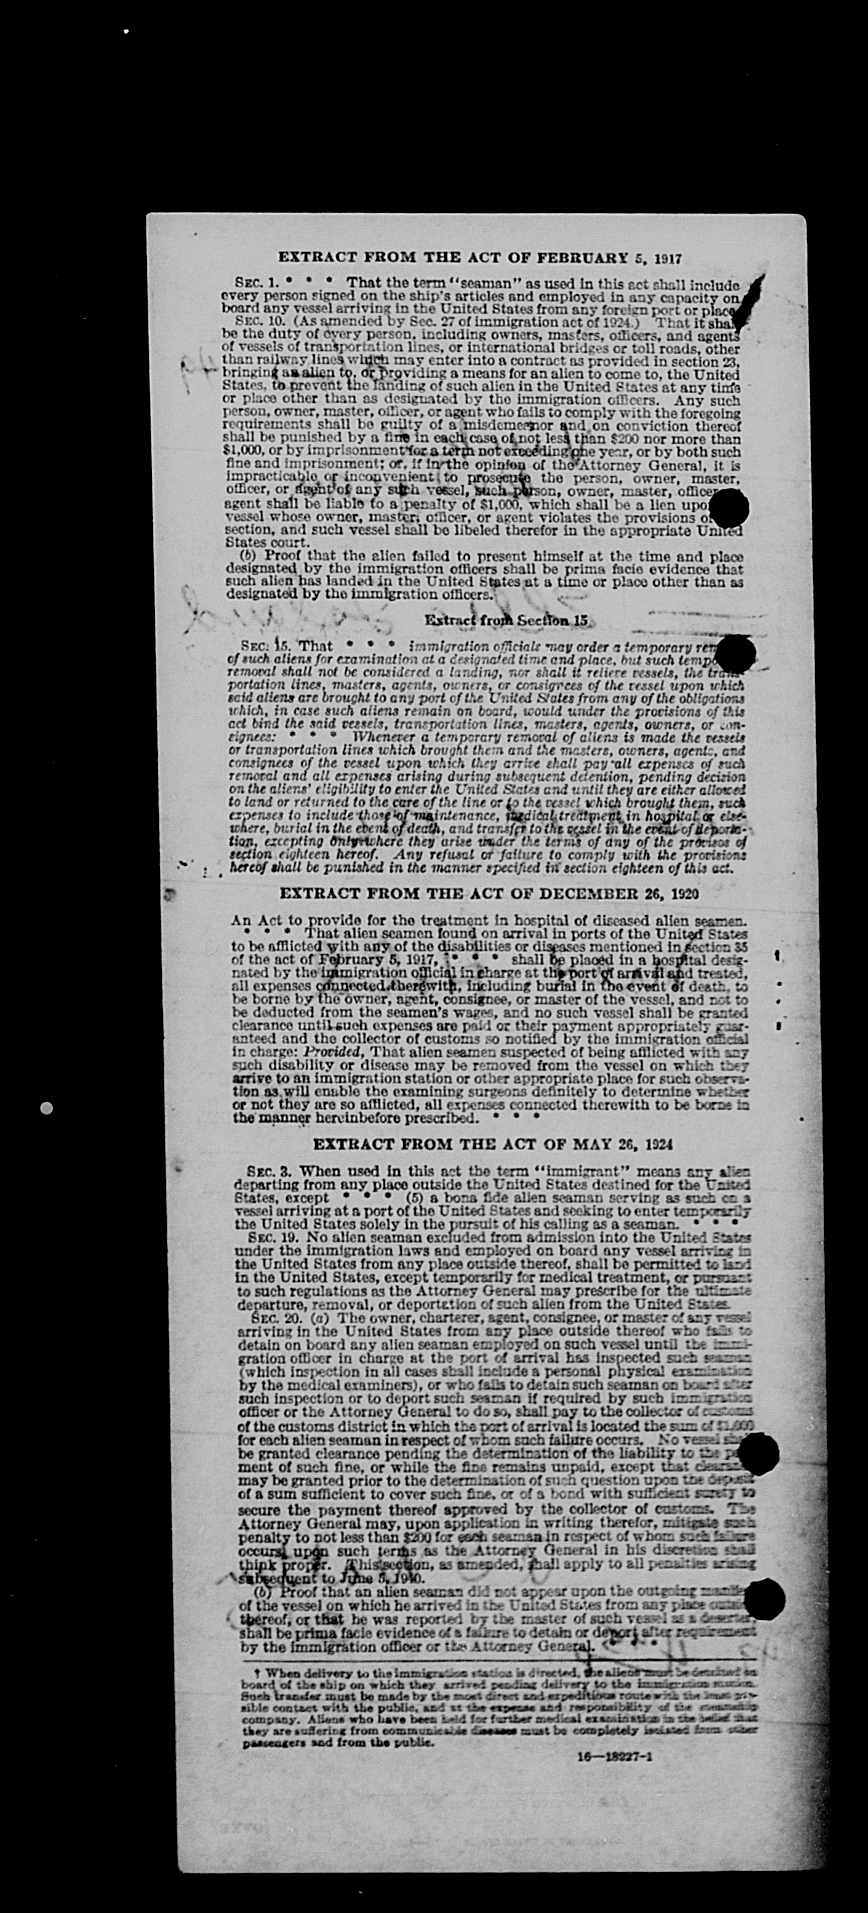 EXTRACT FROM THE ACT OF FEBRUARY 5, 1917
SEC. 1. * * * That the term "seaman" as used in this act shall include
every person signed on the ship's articles and employed in any capacity on
board any vessel arriving in the United States from any foreign port or place.
SEC. 10. (As amended by Sec. 27 of immigration act of 1924.) That it shall
be the duty of every person, including owners, masters, officers, and agents
of vessels of transportation lines, or international bridges or toll roads, other
than railway lines which may enter into a contract as provided in section 23,
bringing an alien to, or providing a means for an alien to come to, the United
States, to prevent the landing of such alien in the United States at any time
or place other than as designated by the immigration officers. Any such
person, owner, master, officer, or agent who fails to comply with the foregoing
requirements shall be guilty of a misdemeanor and on conviction thereof
shall be punished by a fine in each case of not less than $200 nor more than
$1,000, or by imprisonment for a term not exceeding one year, or by both such
fine and imprisonment; or, if in the opinion of the Attorney General, it is
impracticable or inconvenient to prosecute the person, owner, master,
officer, or agent of any such vessel, such person, owner, master, officer
agent shall be liable to a penalty of $1,000, which shall be a lien upo
vessel whose owner, master, officer, or agent violates the provisions of
section, and such vessel shall be libeled therefor in the appropriate United
States court.
(b) Proof that the alien failed to present himself at the time and place
designated by the immigration officers shall be prima facie evidence that
such alien has landed in the United States at a time or place other than as
designated by the immigration officers.
Extract from Section 15
SEC. 15. That * * * immigration officials may order a temporary rem
of such aliens for examination at a designated time and place, but such tempo
removal shall not be considered a landing, nor shall it relieve vessels, the trans-
portation lines, masters, agents, owners, or consignees of the vessel upon which
said aliens are brought to any port of the United States from any of the obligations
which, in case such aliens remain on board, would under the provisions of this
act bind the said vessels, transportation lines, masters, agents, owners, or con-
signees: * * * Whenever a temporary removal of aliens is made the vessels
or transportation lines which brought them and the masters, owners, agents, and
consignees of the vessel upon which they arrive shall pay all expenses of such
removal and all expenses arising during subsequent detention, pending decision
on the aliens' eligibility to enter the United States and until they are either allowed
to land or returned to the care of the line or to the vessel which brought them, such
expenses to include those of maintenance, medical treatment in hospital or else-
where, burial in the event of death, and transfer to the vessel in the event of deporta-
tion, excepting only where they arise under the terms of any of the provisos of
section eighteen hereof. Any refusal or failure to comply with the provisions
hereof shall be punished in the manner specified in section eighteen of this act.
EXTRACT FROM THE ACT OF DECEMBER 26, 1920
An Act to provide for the treatment in hospital of diseased alien seamen.
* * * That alien seamen found on arrival in ports of the United States
to be afflicted with any of the disabilities or diseases mentioned in section 35
of the act of February 5, 1917, * * * shall be placed in a hospital desig-
nated by the immigration official in charge at the port of arrival and treated,
all expenses connected therewith, including burial in the event of death, to
be borne by the owner, agent, consignee, or master of the vessel, and not to
be deducted from the seamen's wages, and no such vessel shall be granted
clearance until such expenses are paid or their payment appropriately guar-
anteed and the collector of customs so notified by the immigration official
in charge: Provided, That alien seamen suspected of being afflicted with any
such disability or disease may be removed from the vessel on which they
arrive to an immigration station or other appropriate place for such observa-
tion as will enable the examining surgeons definitely to determine whether
or not they are so afflicted, all expenses connected therewith to be borne in
the manner hereinbefore prescribed. * * *
EXTRACT FROM THE ACT OF MAY 26, 1924
SEC. 3. When used in this act the term "immigrant" means any alien
departing from any place outside the United States destined for the United
States, except * * * (5) a bona fide alien seaman serving as such on a
vessel arriving at a port of the United States and seeking to enter temporarily
the United States solely in the pursuit of his calling as a seaman. * * *
SEC. 19. No alien seaman excluded from admission into the United States
under the immigration laws and employed on board any vessel arriving in
the United States from any place outside thereof, shall be permitted to land
in the United States, except temporarily for medical treatment, or pursuant
to such regulations as the Attorney General may prescribe for the ultimate
departure, removal, or deportation of such alien from the United States.
SEC. 20. (a) The owner, charterer, agent, consignee, or master of any vessel
arriving in the United States from any place outside thereof who fails to
detain on board any alien seaman employed on such vessel until the immi-
gration officer in charge at the port of arrival has inspected such seaman
(which inspection in all cases shall include a personal physical examination
by the medical examiners), or who fails to detain such seaman on board after
such inspection or to deport such seaman if required by such immigration
officer or the Attorney General to do so, shall pay to the collector of customs
of the customs district in which the port of arrival is located the sum of $1,000
for each alien seaman in respect of whom such failure occurs. No vessel shall
be granted clearance pending the determination of the liability to the pay
ment of such fine, or while the fine remains unpaid, except that clearance
may be granted prior to the determination of such question upon the deposit
of a sum sufficient to cover such fine, or of a bond with sufficient surety to
secure the payment thereof approved by the collector of customs. The
Attorney General may, upon application in writing therefor, mitigate such
penalty to not less than $200 for each seaman in respect of whom such failure
occurs upon such terms as the Attorney General in his discretion shall
think proper. This section, as amended, shall apply to all penalties arising
subsequent to June 5, 1940.
(b) Proof that an alien seaman did not appear upon the outgoing manifest
of the vessel on which he arrived in the United States from any place outside
thereof, or that he was reported by the master of such vessel as a deserter,
shall be prima facie evidence of a failure to detain or deport after requirement
by the immigration officer or the Attorney General. * * *
† When delivery to the immigration station is directed, the aliens must be detained on
board of the ship on which they arrived pending delivery to the immigration station.
Such transfer must be made by the most direct and expeditious route with the least pos-
sible contact with the public, and at the expense and responsibility of the steamship
company. Aliens who have been held for further medical examination in the belief that
they are suffering from communicable diseases must be completely isolated from other
passengers and from the public.
16—18227-1